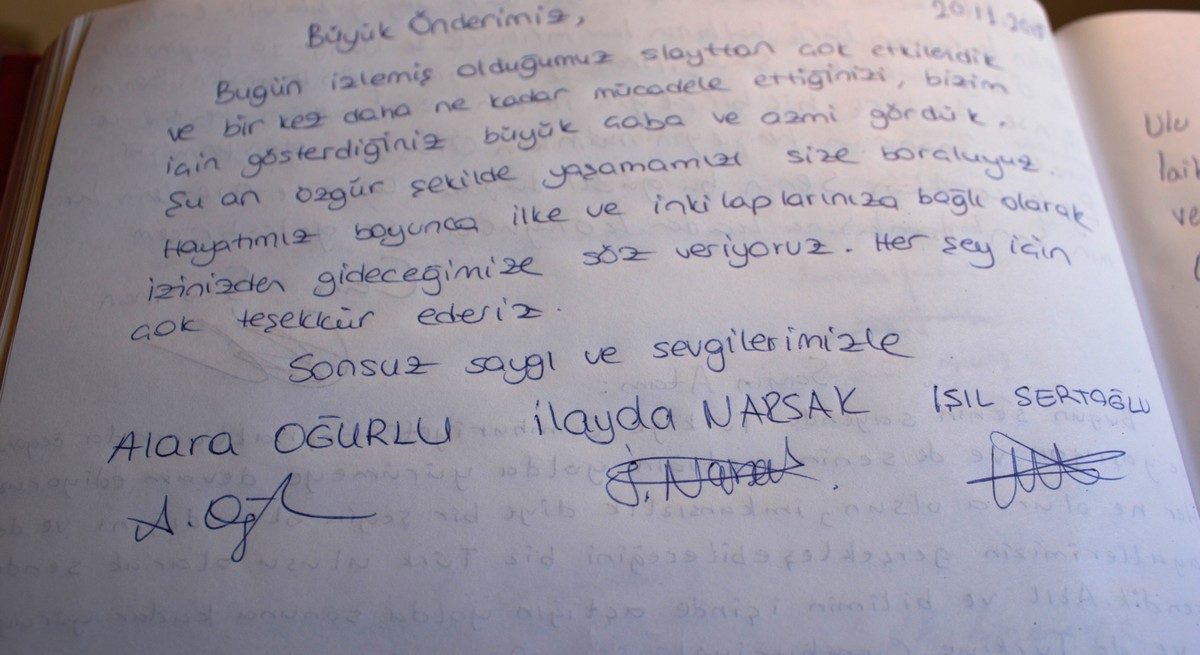 20.11.20
Büyük Önderimiz,
Bugün izlemiş olduğumuz slayttan çok etkilendik
ve bir kez daha ne kadar mücadele ettiğinizi, bizim
için gösterdiğiniz büyük çaba ve azmi gördük.
Şu an özgür şekilde yaşamamızı size borçluyuz.
Hayatımız boyunca ilke ve inkilaplarınıza bağlı olarak
izinizden gideceğimize söz veriyoruz. Her şey için
çok teşekkür ederiz.
Sonsuz saygı ve sevgilerimizle
Alara OĞURLU İlayda NAPSAK IŞIL SERTOĞLU
A. Oğ
Ulu
ve